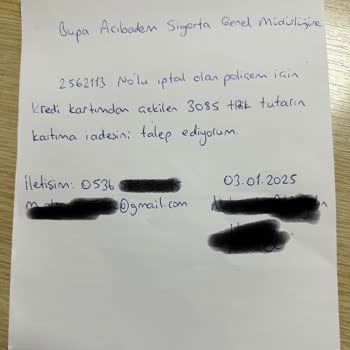 Bupa Acıbadem Sigorta Genel Müdürlüğüne
2562113 No'lu iptal olan poliçem için
kredi kartımdan çekilen 3085 tutarın
kartıma iadesini talep ediyorum.
İletişim: 0536
03.01.2025
@gmail.com